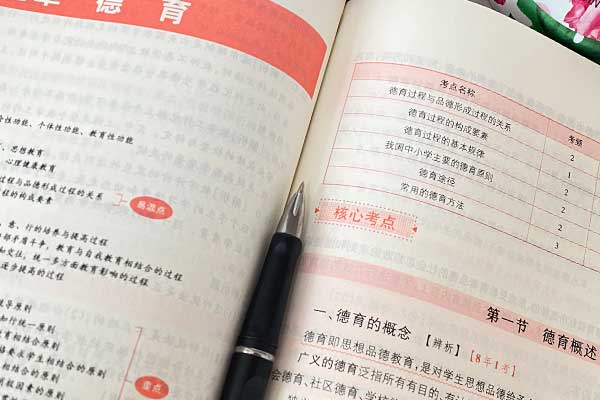 德 育
性功能、个体性功能、教育性功能
、思想教育
、心理健康教育
过程与品德形成过程的关系
程的构成要素
易混点
意、行的培养与提高过程
内部矛盾斗争，教育与自我教育相结合的过程
和交往，统一多方面教育影响的过程
逐步提高的过程
导原则
知行统一原则
育相结合原则
格要求学生相结合的原则
相结合的原则
消极因素的原则
重点
考点名称
考频
德育过程与品德形成过程的关系
2
德育过程的构成要素
1
德育过程的基本规律
2
我国中小学主要的德育原则
2
德育途径
2
常用的德育方法
3
核心考点
第一节 德育概述
一、德育的概念 【辨析】【8年1考】
德育即思想品德教育，是对学生思想品德给予
广义的德育泛指所有有目的、有
会德育、社区德育、学校